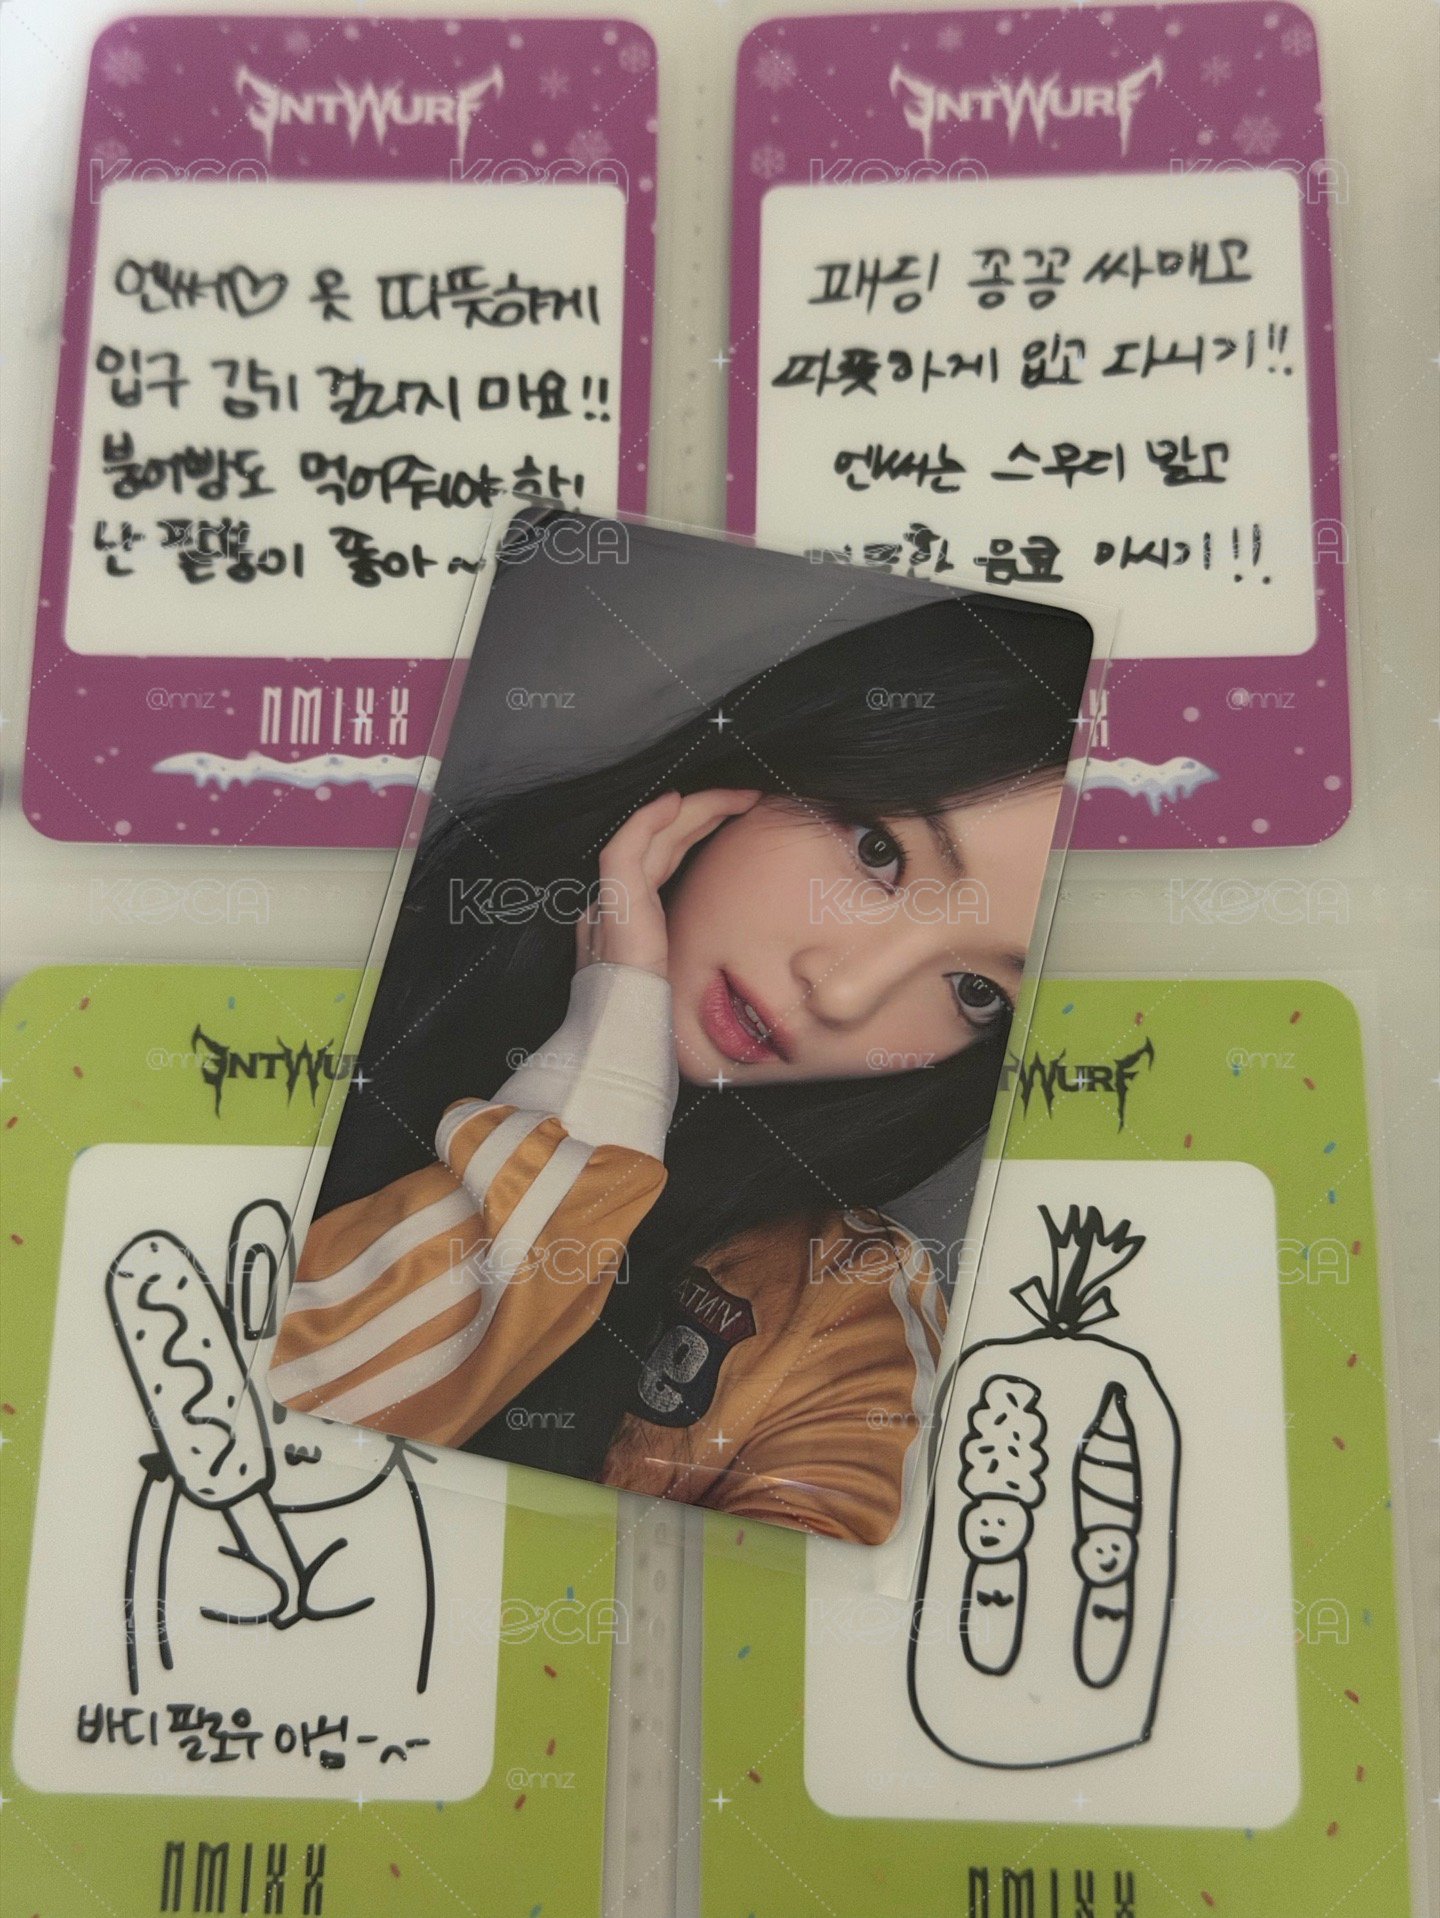 ENTWURF
엔써♡ 옷 따뜻하게
입구 감기 걸리지 마요!!
붕어빵도 먹어줘야 함!
난 팥붕이 좋아~
NMIXX
ENTWURF
패딩 꽁꽁 싸매고
따뜻하게 입고 다니기!!
엔써는 스무디 말고
음료 마시기!!
X
ENTWU
바디필로우 아님~~
NMIXX
TWURF
NMIXX
VINTA
9
KOCA
@nniz